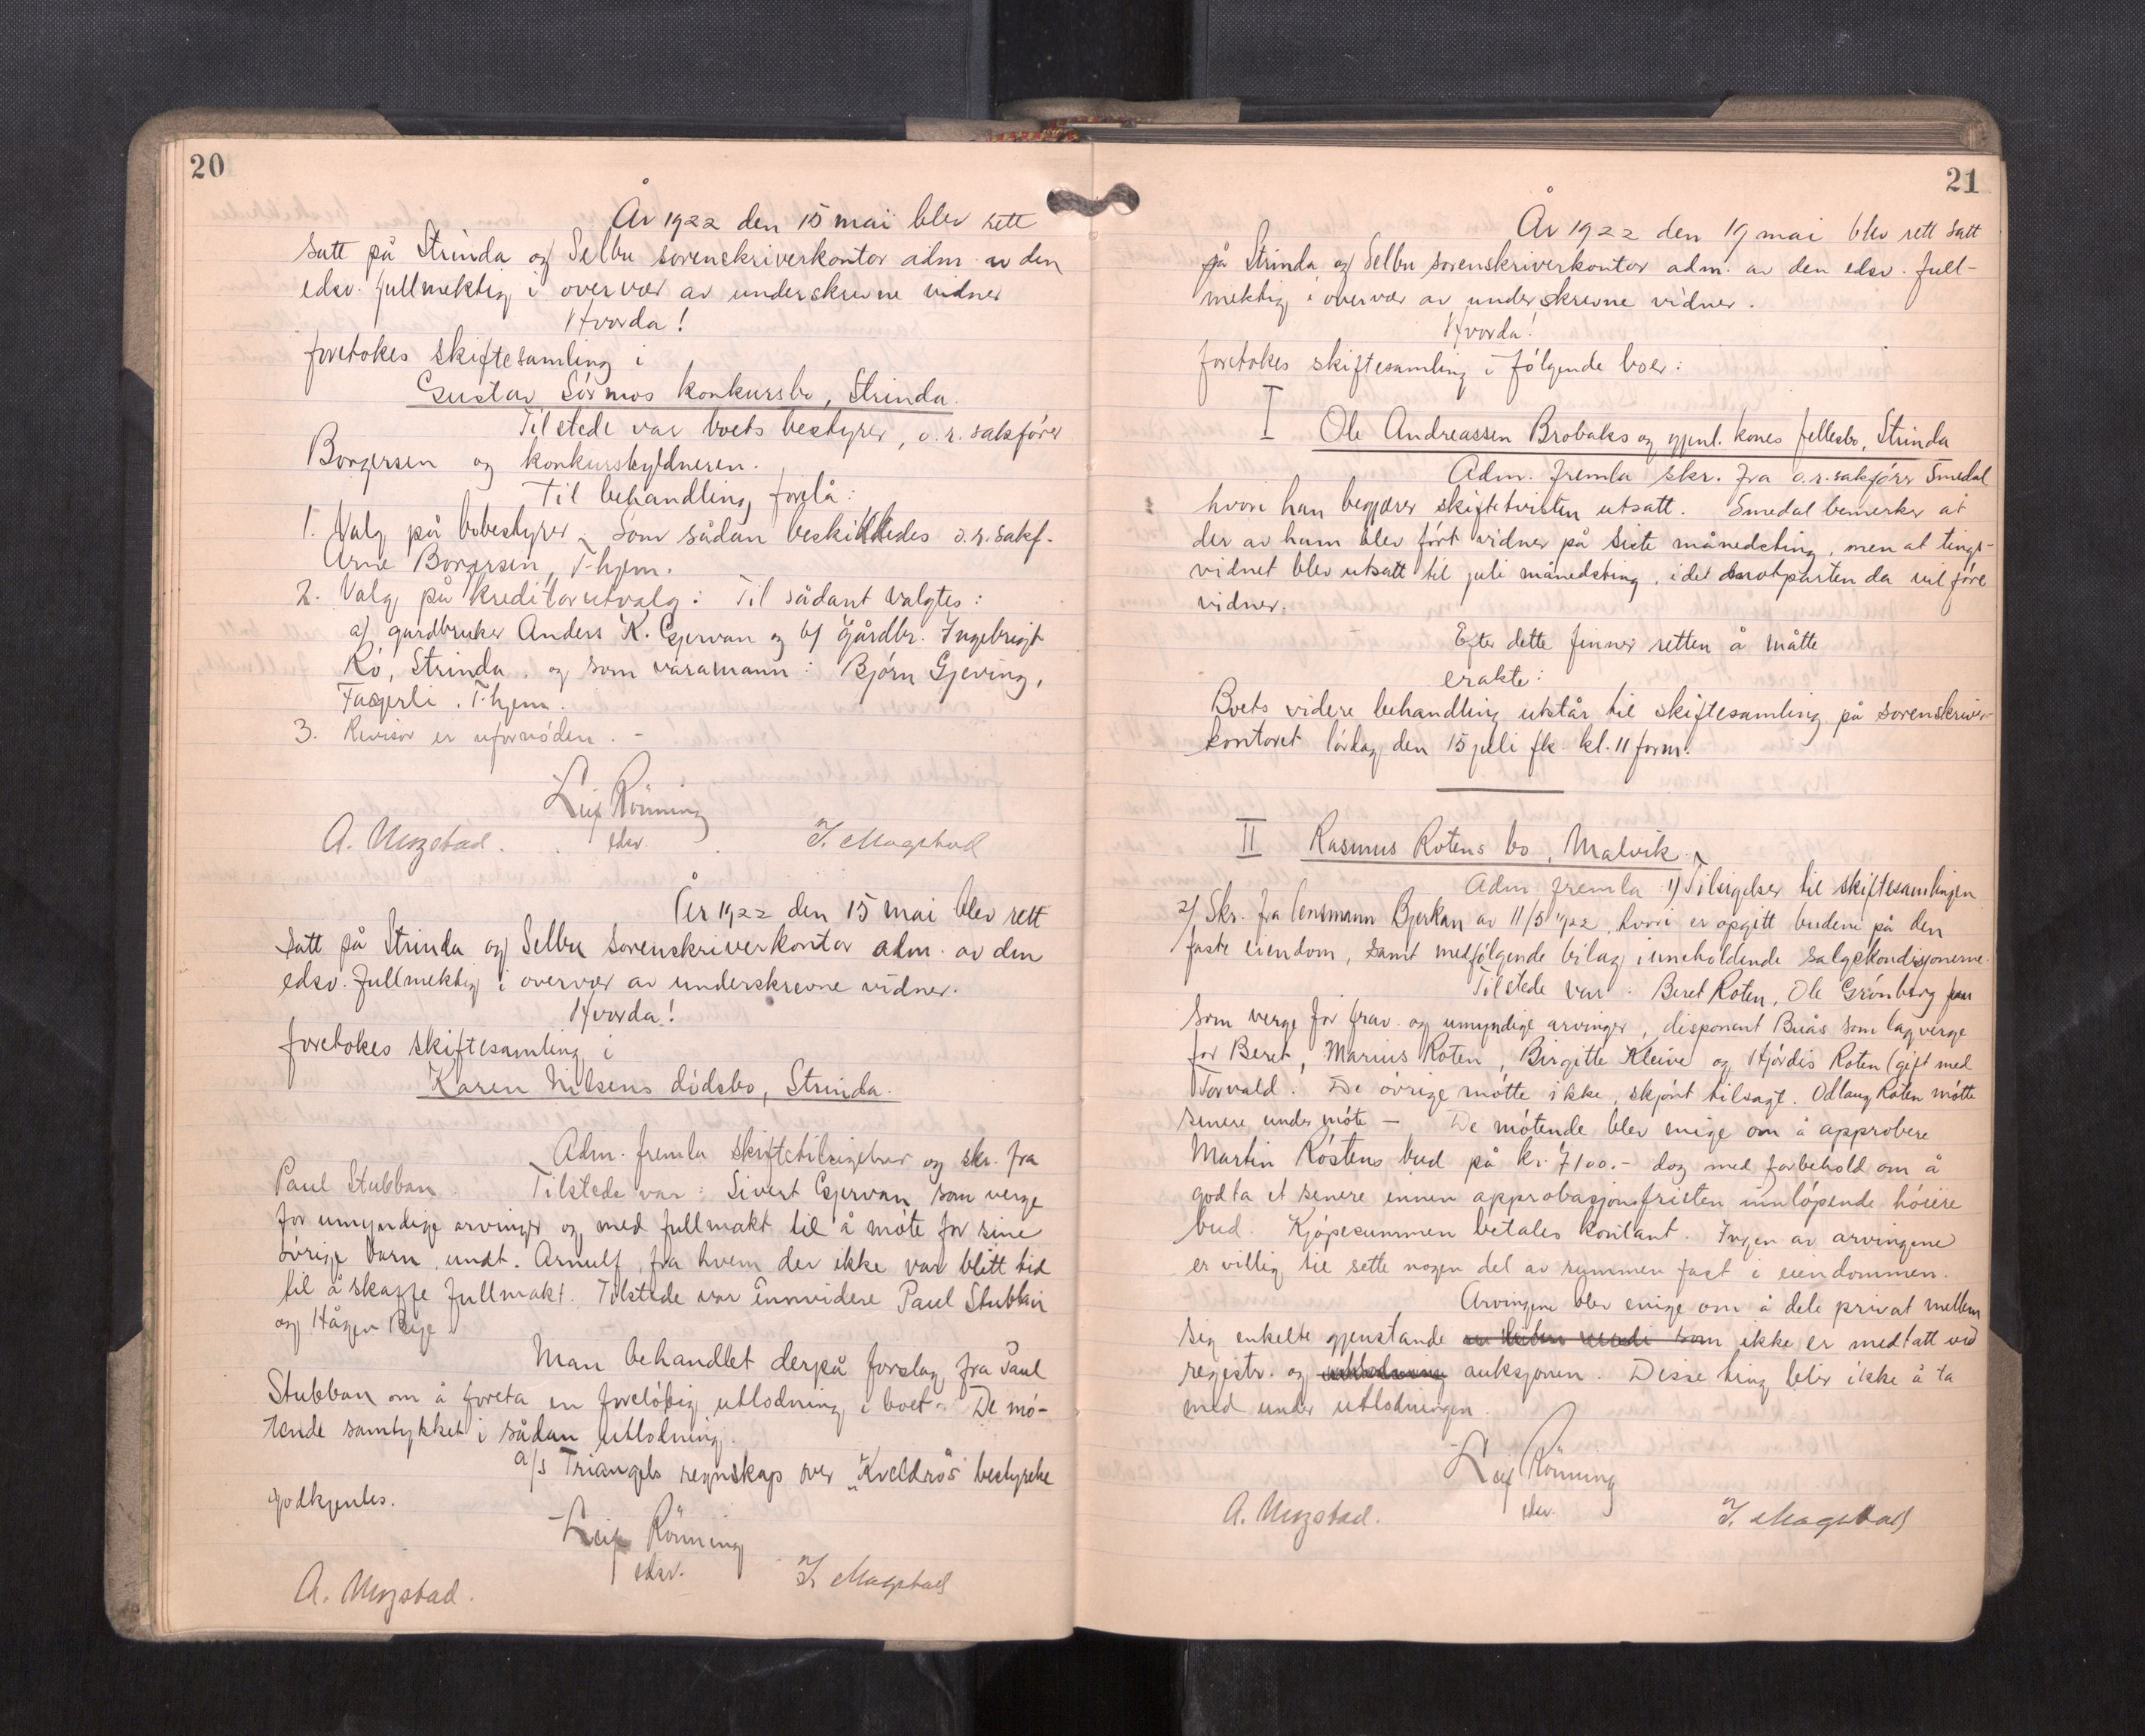 20
År 1922 den 15 mai blev rett
satt på Strinda og Selbu sorenskriverkontor adm. av den
edsv. fullmektig i overvær av underskrevne vidner
Hvorda!
foretokes skiftesamling i
Gustav Sörmos konkursbo, Strinda.
Tilstede var boets bestyrer, o.r.sakförer
Borgersen og konkursskyldneren.
Til behandling forelå:
1. Valg på bobestyrer. Som sådan beskikkedes o.r.sakf.
Arne Borgersen, T-hjem.
2. Valg på kreditorutvalg: Til sådant valgtes:
a/ gardbruker Anders K. Gjervan og b/ Gårdbr. Ingebrigt
Rö, Strinda, og som varamann: Björn Gjeving,
Fagerli, T-hjem.
3. Revisor er ufornöden. -
Leif Rönning
edsv.
A. Mogstad.
I. Mogstad
År 1922 den 15 mai blev rett
satt på Strinda og Selbu sorenskriverkontor adm. av den
edsv. fullmektig i overvær av underskrevne vidner.
Hvorda!
foretokes skiftesamling i
Karen Nilsens dödsbo, Strinda.
Adm. fremla skiftetilsigelser og skr. fra
Paul Stubban. Tilstede var: Sivert Gjervan som verge
for umyndige arvinger og med fullmakt til å möte for sine
övrige barn, undt. Arnulf, fra hvem der ikke var blitt tid
til å skaffe fullmakt. Tilstede var ennvidere Paul Stubban
og Hågen
Man behandlet derpå forslag fra Paul
Stubban om å foreta en forelöbig utlodning i boet. De mö-
tende samtykket i sådan utlodning.
A/s Triangels regnskap over "Kveldrös" bestyrelse
godkjentes.
Leif Rönning
edsv.
A. Mogstad.
I. Mogstad
21
År 1922 den 19 mai blev rett satt
på Strinda og Selbu sorenskriverkontor adm. av den edsv. full-
mektig i overvær av underskrevne vidner.
Hvorda!
foretokes skiftesamling i fölgende boer:
I Ole Andreassen Brobaks og gjenl. kones fellesbo, Strinda
Adm. fremla skr. fra o.r.sakförer Smedal
hvori han begjærer skiftetvisten utsatt. Smedal bemerker at
der av ham blev fört vidner på siste månedsting, men at tings-
vidnet blev utsatt til juli månedsting, idet motparten da vil före
vidner.
Efter dette finner retten å måtte
erakte:
Boets videre behandling utstår til skiftesamling på sorenskriver-
kontoret lördag den 15 juli fk. kl. 11 form.
II Rasmus Rotens bo, Malvik.
Adm. fremla 1) Tilsigelser til skiftesamlingen
2/ Skr. fra lensmann Bjerkan av 11/5 1922, hvori er opgitt budene på den
faste eiendom, samt medfölgende bilag inneholdende salgskondisjonerne.
Tilstede var: Beret Roten, Ole Grönberg
som verge for frav. og umyndige arvinger, disponent Buås som lagverge
for Beret, Marius Roten, Birgitte Kleive og Hjördis Roten (gift med
Torvald. De övrige mötte ikke, skjönt tilsagt. Odlaug Roten mötte
senere under möte - De mötende blev enige om å approbere
Martin Röstens bud på kr. 7100.- dog med forbehold om å
godta et senere innen approbasjonsfristen innlöpende höiere
bud. Kjöpesummen betales kontant. Ingen av arvingene
er villig til sette nogen del av summen fast i eiendommen.
Arvingene blev enige om å dele privat mellem
sig enkelte gjenstande som ikke er medtatt ved
registr. og utlodning auksjonen. Disse ting blir ikke å ta
med under utlodningen.
Leif Rönning
edsv.
A. Mogstad.
I. Mogstad